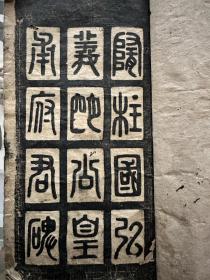 隨柱國弘
義明公皇
甫府君碑